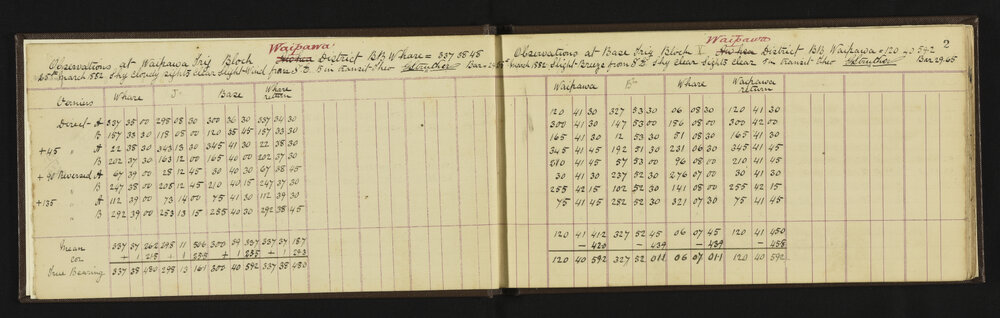 Waipawa
Observations at Waipawa Trig Block District BB Whare = 337 38 48
25th March 1882 Sky cloudy sights clear slight Wind from S.E. 5 in transit Theo Bar 29.65
Verniers Whare J Base Whare return
Direct A 337 35 00 298 08 30 300 36 30 337 34 30
B 157 33 30 118 08 00 120 35 45 157 33 30
+45 " A 22 38 30 343 13 30 345 41 30 22 38 30
" B 202 37 30 163 12 00 165 40 00 202 37 30
+90 Reversed A 67 39 00 28 12 45 30 40 30 67 38 45
" B 247 38 00 208 12 45 210 40 15 247 37 30
+135 " A 112 39 00 73 14 00 75 41 30 112 39 30
" B 292 39 00 253 13 15 255 40 30 292 38 45
Mean 337 37 262 298 11 506 300 39 337 37 187
cor + 1 218 + 1 255 + 1 255 + 1 293
True Bearing 337 38 480 298 13 161 300 40 592 337 38 480
2
Waipawa
Observations at Base Trig Block V District BB Waipawa = 120 40 592
March 1882 Slight Breeze from S.E. Sky clear sights clear 5 in transit Theo Bar 29.65
Waipawa Whare Waipawa return
120 41 30 327 53 30 06 08 30 120 41 30
300 41 30 147 53 00 186 08 00 300 42 00
165 41 30 12 53 30 51 08 30 165 41 30
345 41 45 192 51 30 231 06 30 345 41 45
210 41 45 57 53 00 96 08 00 210 41 45
30 41 30 237 52 30 276 07 00 30 41 30
255 42 15 102 52 30 141 08 00 255 42 15
75 41 45 282 52 30 321 07 30 75 41 45
120 41 412 327 52 45 06 07 45 120 41 450
- 420 - 439 - 439 - 458
120 40 592 327 52 011 06 07 011 120 40 592